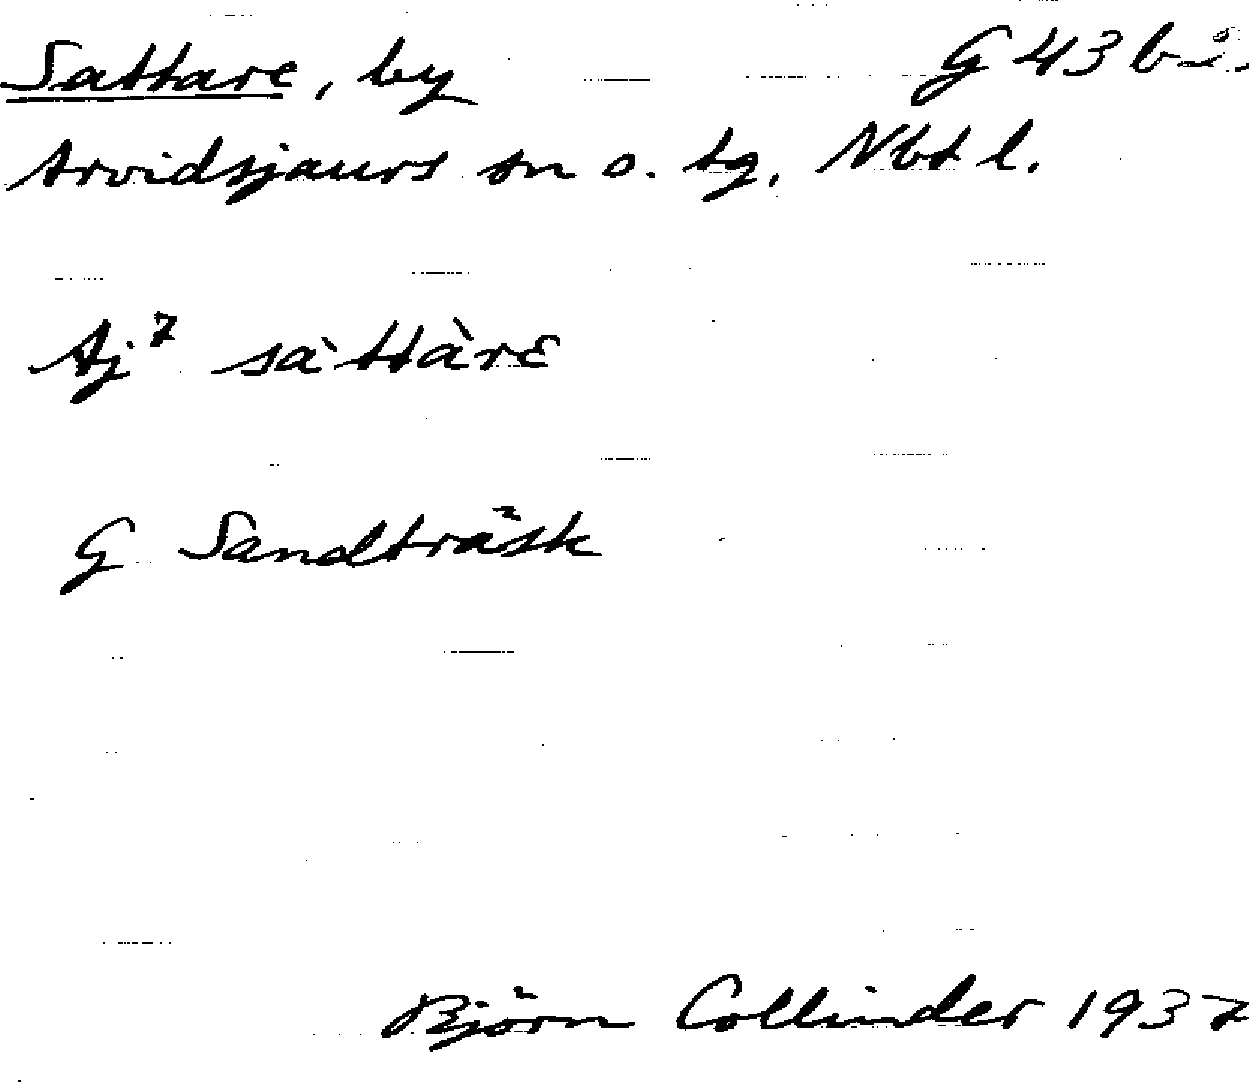 Sattare, by G 43 b
Arvidsjaurs sn o. tg, Nbt l.
Aj⁷ sàttàrɛ
G Sandträsk
Björn Collinder 1937